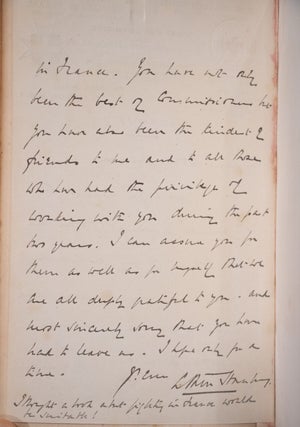 in France. You have not only
been the best of Commissioners but
you have also been the kindest of
friends to me and to all those
who have had the privilege of
working with you during the past
two years. I can assure you for
them as well as for myself that we
are all deply grateful to you. and
most sincerely sorry that you have
had to leave us. I hope only for a
time.
Yr. Ever
I thought a book about fighting in France would
be suitable!